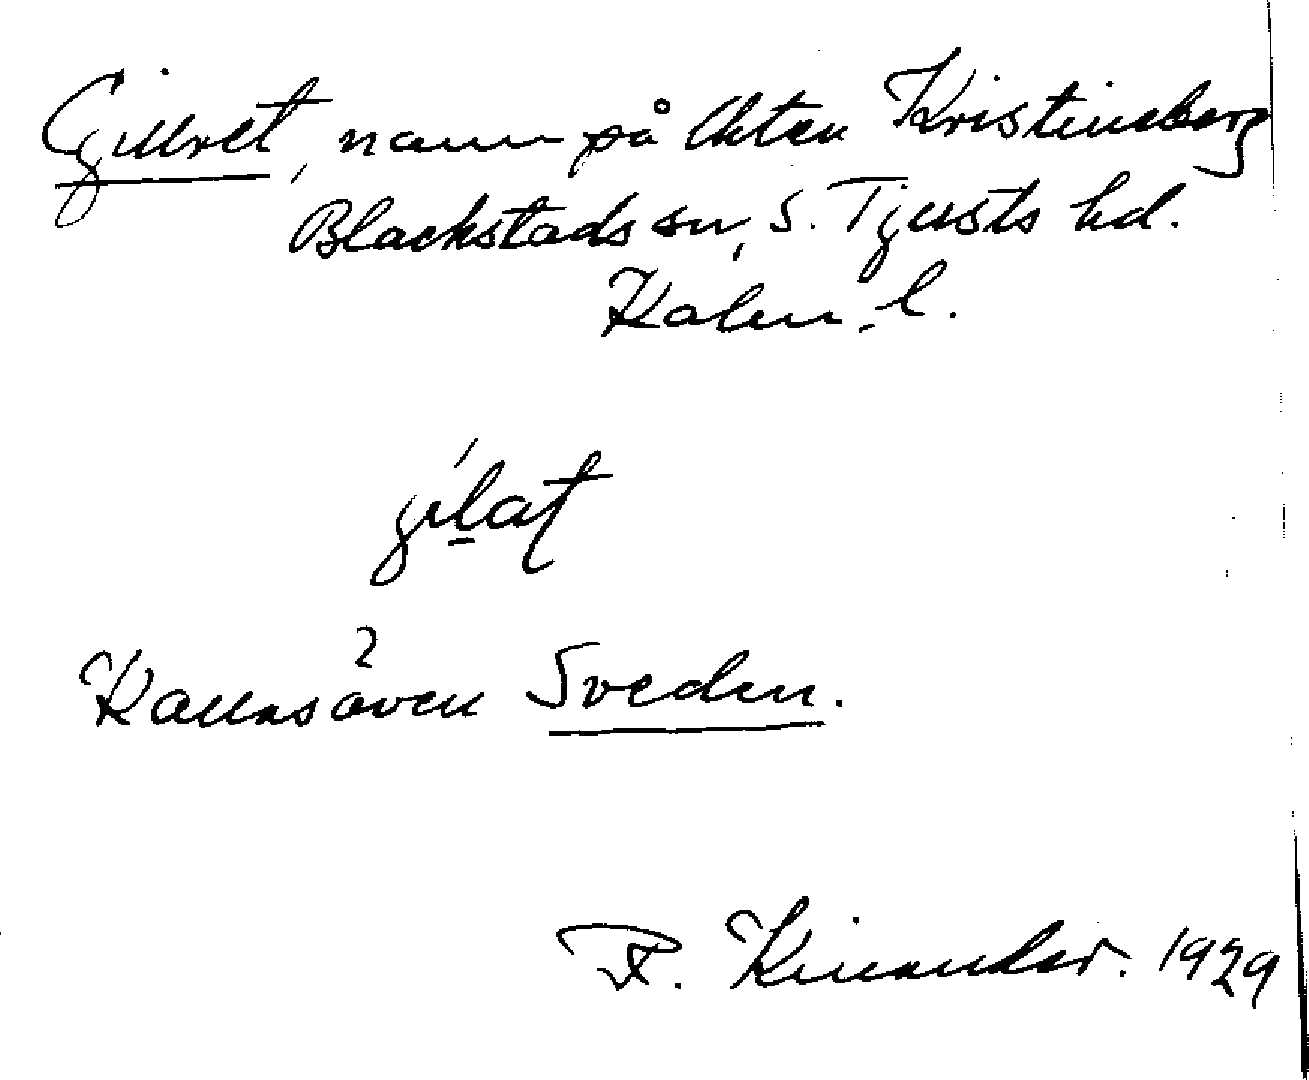 Gillret, namn på Akten Kristineberg
Blackstads sn, S. Tjusts hd.
Kalm. l.
gìlat
2
Kallas även Sveden.
R. Kinander. 1929